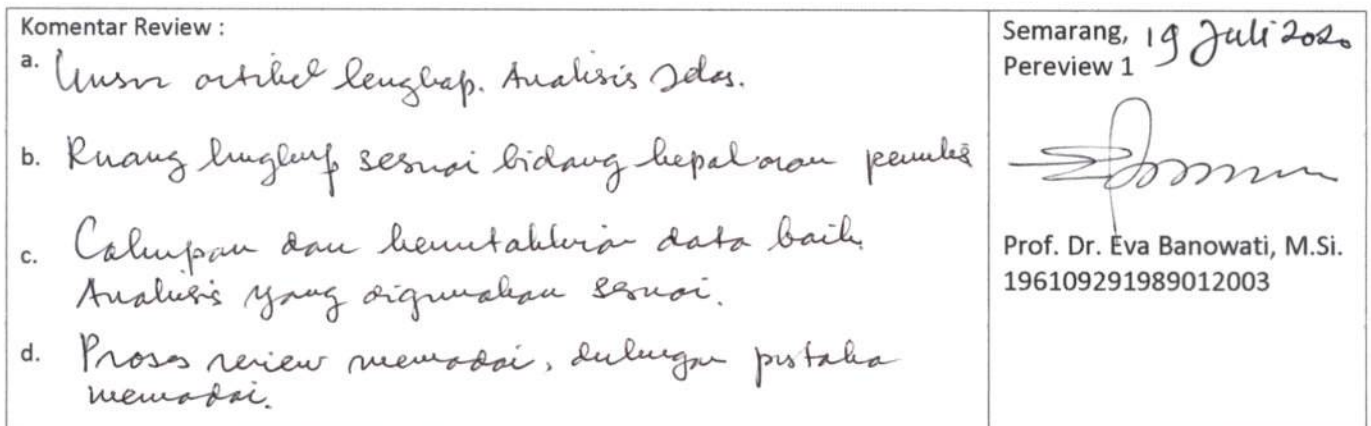 Komentar Review :
a. Unsur artikel lengkap. Analisis jelas.
b. Ruang lingkup sesuai bidang kepakaran penulis
c. Cakupan dan kemutakhiran data baik.
Analisis yang digunakan sesuai.
d. Proses review memadai, dukungan pustaka
memadai.
Semarang, 19 Juli 2020
Pereview 1
Prof. Dr. Eva Banowati, M.Si.
196109291989012003